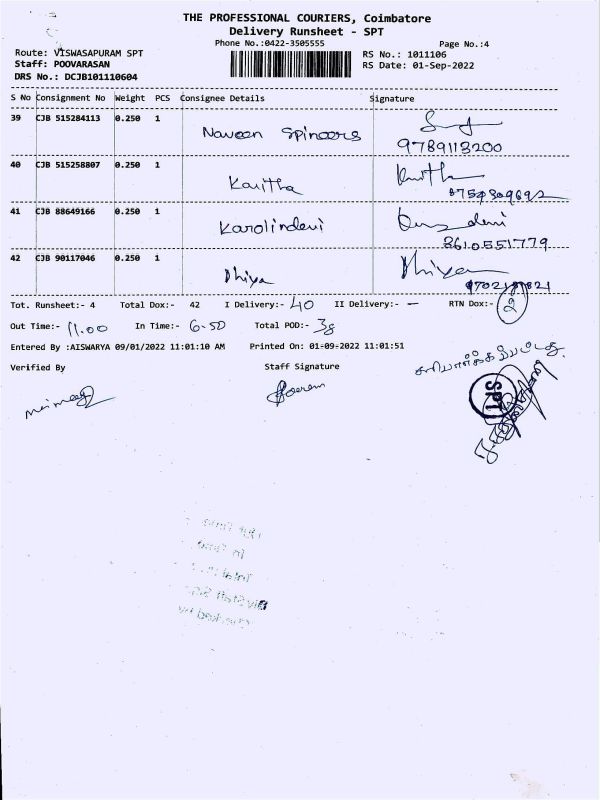 THE PROFESSIONAL COURIERS, Coimbatore
Delivery Runsheet - SPT
Phone No.:0422-3505555 Page No.:4
Route: VISWASAPURAM SPT RS No.: 1011106
Staff: POOVARASAN RS Date: 01-Sep-2022
DRS No.: DCJB101110604
S No Consignment No Weight PCS Consignee Details Signature
39 CJB 515284113 0.250 1
Naveen Spinners
9789113200
40 CJB 515258807 0.250 1
Kavitha
41 CJB 88649166 0.250 1
Karolindevi
8610551779
42 CJB 90117046 0.250 1
Dhiya
Tot. Runsheet:- 4 Total Dox:- 42 I Delivery:- 40 II Delivery:- - RTN Dox:- 2
Out Time:- 11.00 In Time:- 6-50 Total POD:- 38
Entered By :AISWARYA 09/01/2022 11:01:10 AM Printed On: 01-09-2022 11:01:51
Verified By Staff Signature
சரிபார்க்கப்பட்டது
SPT